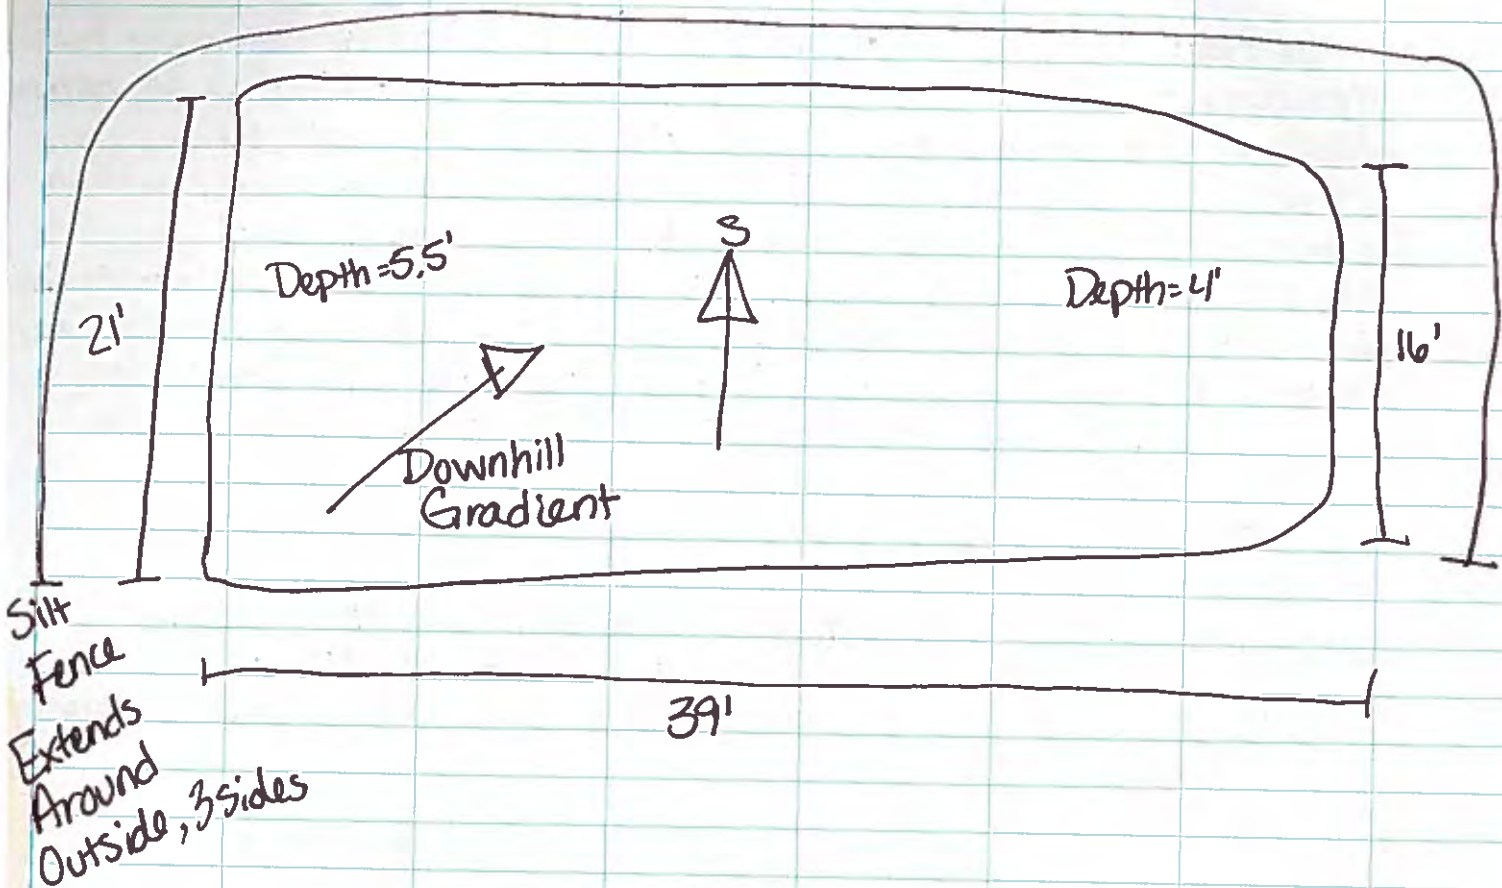 S
Depth=5.5'
Depth=4'
21'
16'
Downhill
Gradient
39'
Silt
Fence
Extends
Around
Outside, 3 sides